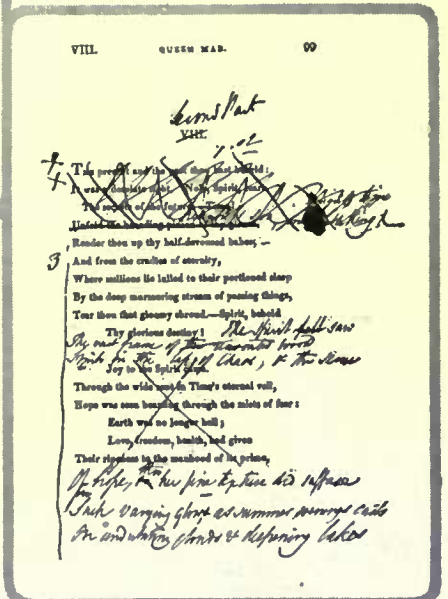 VIII. QUEEN MAB. 99
Second Part
VIII.
The present and the past thou hast beheld:
It was a desolate sight. Now, Spirit, learn
The secrets of the future.
Unfold the brooding
Render thou up thy half-devoured babes, —
3 And from the cradles of eternity,
Where millions lie lulled to their portioned sleep
By the deep murmuring stream of passing things,
Tear thou that gloomy shroud.—Spirit, behold
Thy glorious destiny! The Spirit saw
The vast frame of the renovated world
in the of Chaos, & the
Joy to the Spirit came.
Through the wide rent in Time's eternal veil,
Hope was seen beaming through the mists of fear:
Earth was no longer hell;
Love, freedom, health, had given
Their ripeness to the manhood of its prime,
Of hope, her fine texture did suffuse
Such varying glow as summer evenings casts
On undulating clouds & deepening lakes